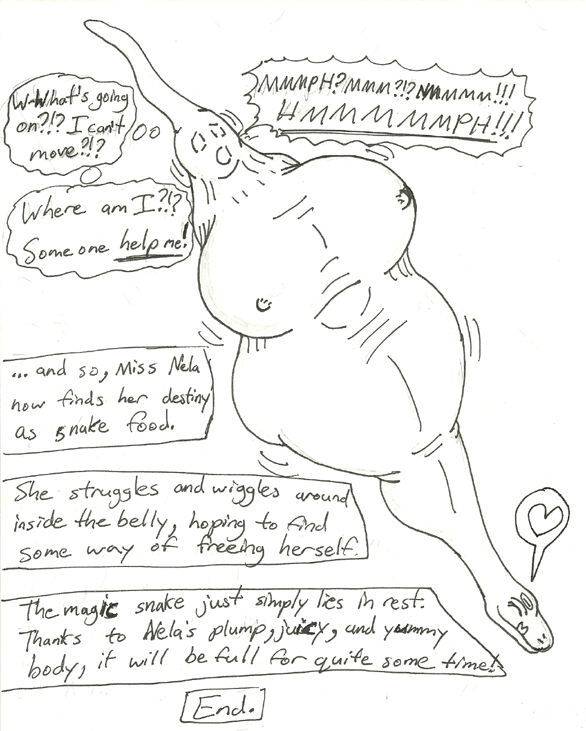 W-What's going
on?!? I can't
move?!?
Where am I?!?
Someone help me!
MMMPH?MMM?!?NMMMMM!!!
HMMMMMMPH!!!
... and so, Miss Nela
now finds her destiny
as snake food.
She struggles and wiggles around
inside the belly, hoping to find
some way of freeing herself.
The magic snake just simply lies in rest.
Thanks to Nela's plump, juicy, and yummy
body, it will be full for quite some time!
End.